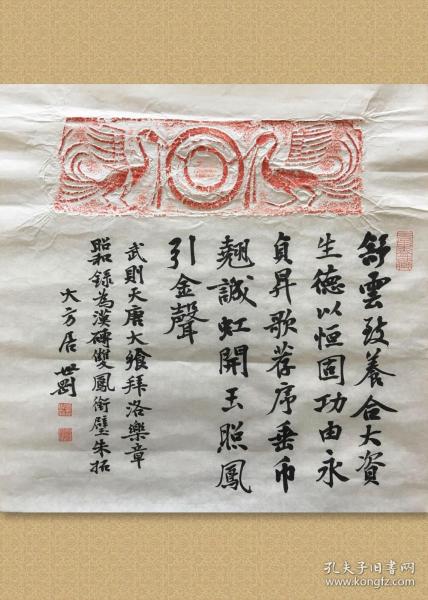 舒雲致養合大資
生德以恒固功由永
貞昇歌荐序垂币
翹誠虹開玉照鳳
引金聲
武則天唐大飨拜洛樂章
昭和錄為漢磚雙鳳銜璧朱拓
大方居 世
孔夫子旧书网
www.kongfz.com